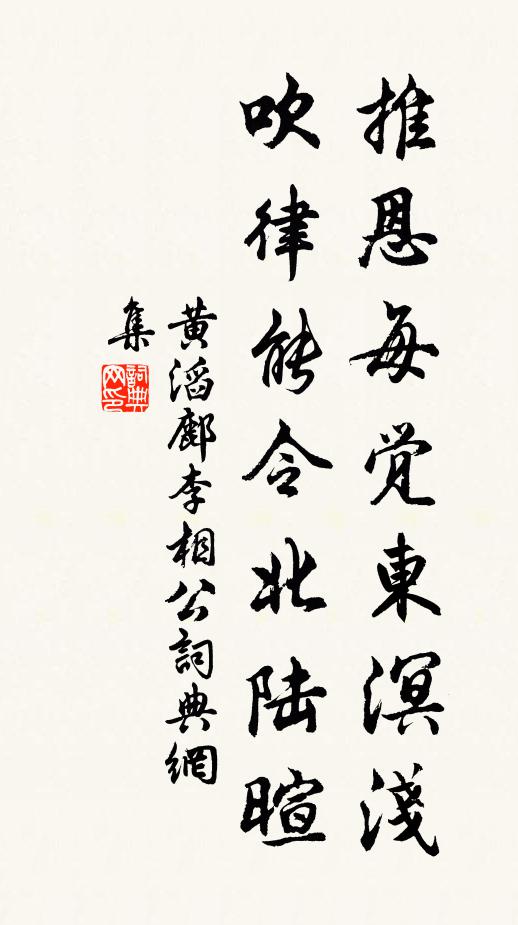 推恩每觉東溟淺
吹律能令北陆暄
黄滔鄜李相公詞典網
集
詞典网印